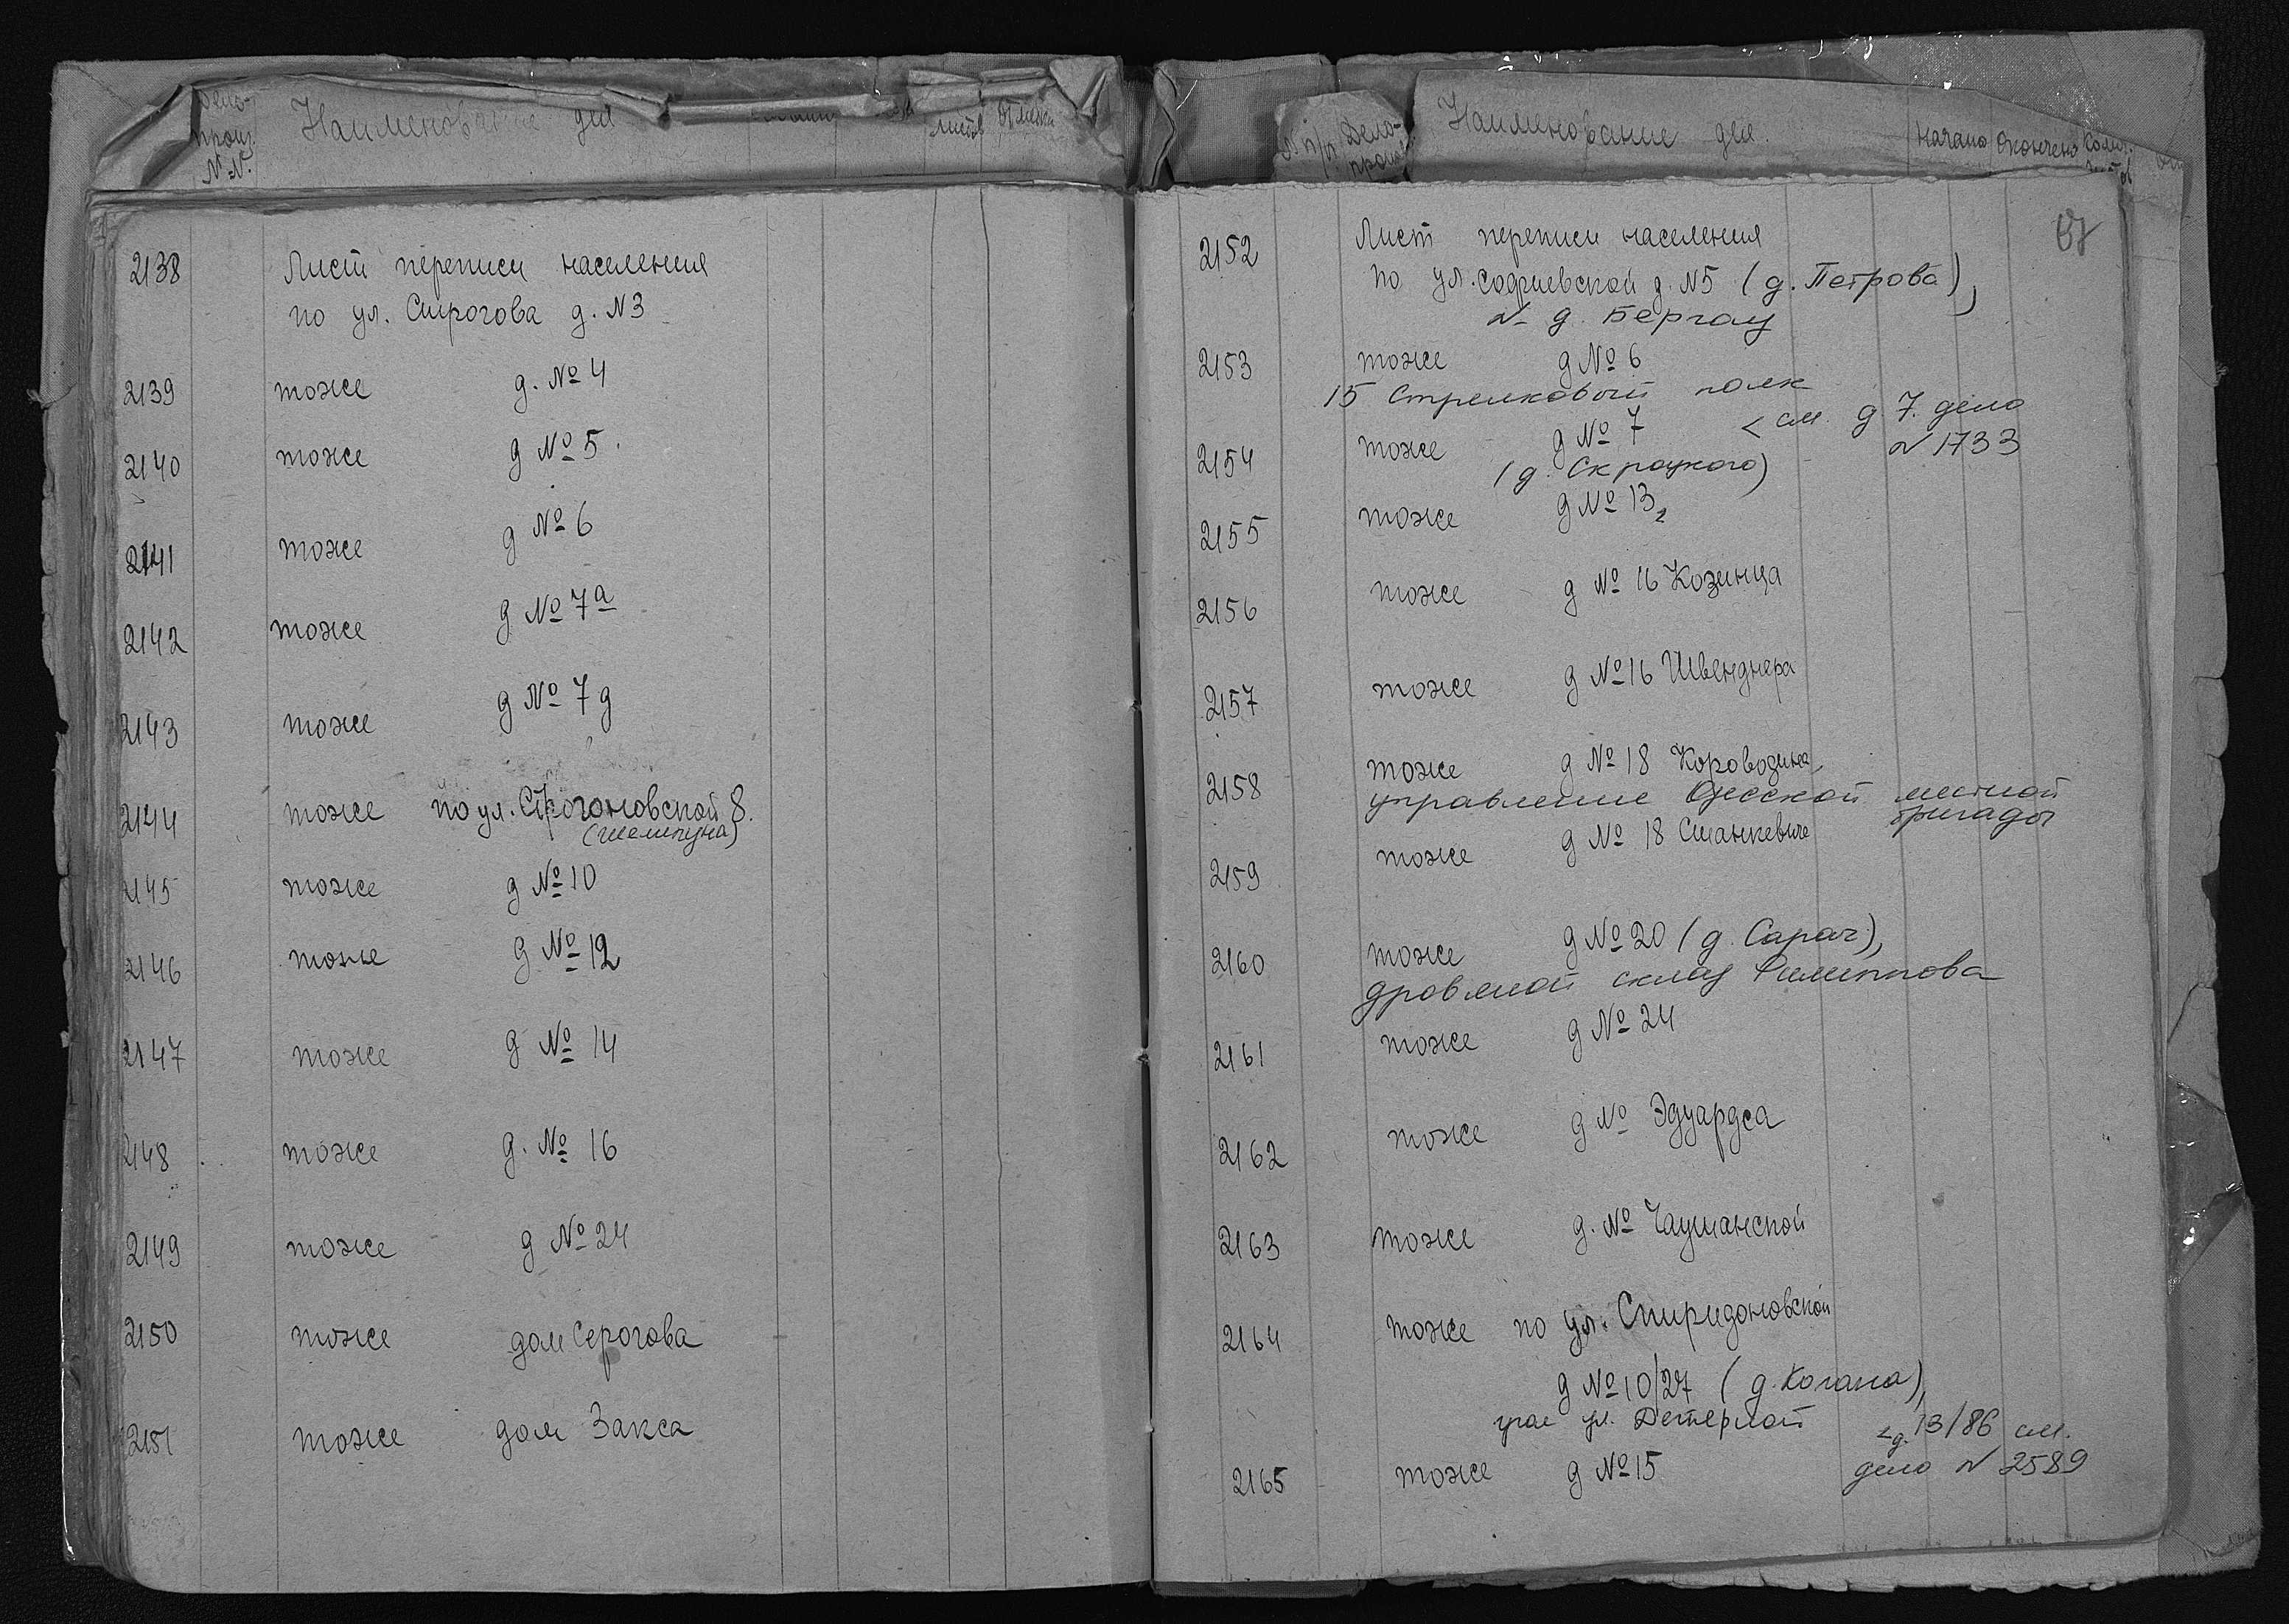 дело-
произ. Наименование дел листов Отметки
№.№.
2138 Лист переписи населения
по ул. Сирогова д. N3
2139 тоже д. № 4
2140 тоже д № 5.
2141 тоже д № 6
2142 тоже д № 7а
2143 тоже д № 7д
2144 тоже по ул. Строгоновской 8.
2145 тоже д № 10
2146 тоже д № 12
2147 тоже д № 14
2148 тоже д. № 16
2149 тоже д № 24
2150 тоже дом Серогова
2151 тоже дом Закса
№ п/п Дело- Наименование дел. Начато Окончено Колич.
произ.
2152 Лист переписи населения
по ул. Софиевской д. N5 (д. Петрова),
д. Бергау
2153 тоже д № 6
15 Стрелковый полк
2154 тоже д № 7 < см. д 7. дело
N 1733
(д. Скроцкого)
2155 тоже д № 13
2156 тоже д № 16 Козинца
2157 тоже д № 16 Швенднера
2158 тоже д № 18 Короводина,
управление Одесской местной
бригады
2159 тоже д № 18 Станкевиче
2160 тоже д № 20 (д. Сарач),
дровяной склад Филиппова
2161 тоже д № 24
2162 тоже д № Эдуардса
2163 тоже д. № Чаушанской
2164 тоже по ул. Спиридоновской
д № 10/27 (д. Когана),
ул. <д. 13/86 см.
2165 тоже д № 15 дело N 2589